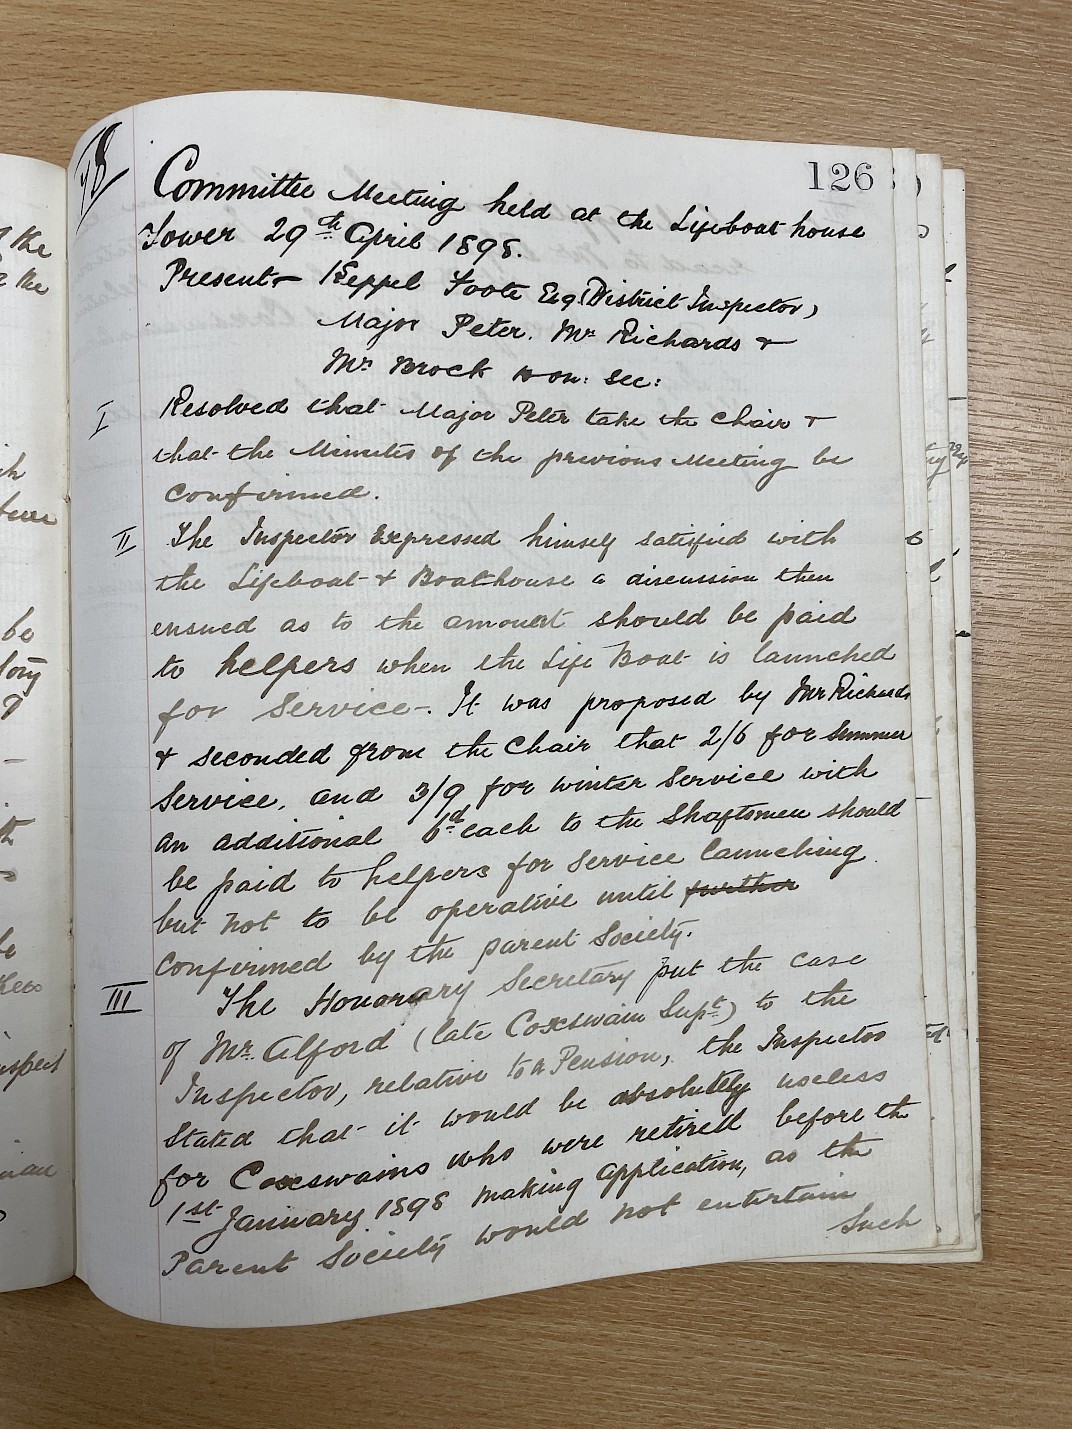 126
Committee Meeting held at the Lifeboat house
Tower 29th April 1898.
Present - Keppel Foote Esq (District Inspector)
Major Peter. Mr Richards &
Mr Brock Hon: Sec:
I Resolved that Major Peter take the Chair &
that the Minutes of the previous Meeting be
confirmed.
II The Inspector Expressed himself satisfied with
the Lifeboat & Boathouse a discussion then
ensued as to the amount should be paid
to helpers when the Life Boat is launched
for Service -. It was proposed by Mr Richards
& seconded from the Chair that 2/6 for Summer
Service, and 3/9 for winter Service with
an additional 6d each to the Shaftsmen should
be paid to helpers for Service launching
but not to be operative until further
confirmed by the parent Society.
III The Honorary Secretary put the case
of Mr. Alford (late Coxswain Supt) to the
Inspector, relative to a Pension, the Inspector
Stated that it would be absolutely useless
for Coxswains who were retired before the
1st January 1898 making application, as the
Parent Society would not entertain
Such